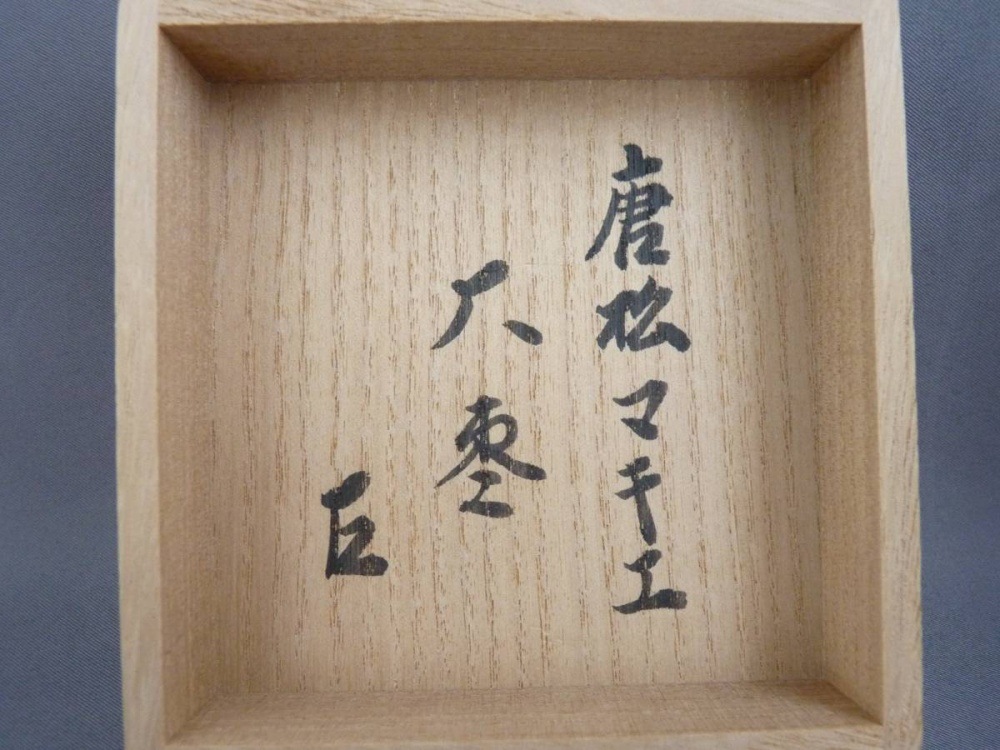 唐松マキエ
大棗
巨